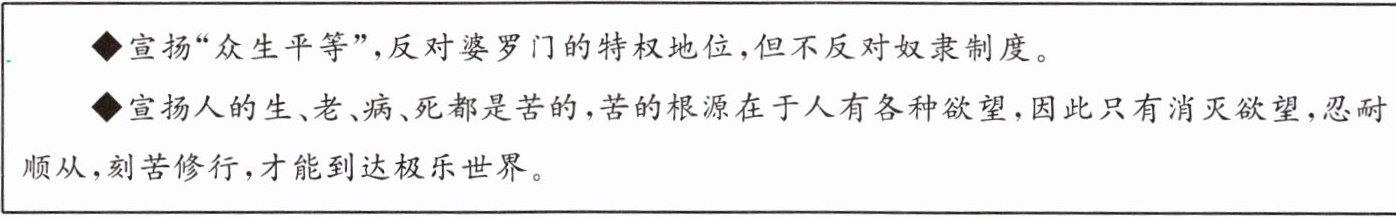 ◆宣扬“众生平等”,反对婆罗门的特权地位,但不反对奴隶制度。
◆宣扬人的生、老、病、死都是苦的,苦的根源在于人有各种欲望,因此只有消灭欲望,忍耐
顺从,刻苦修行,才能到达极乐世界。